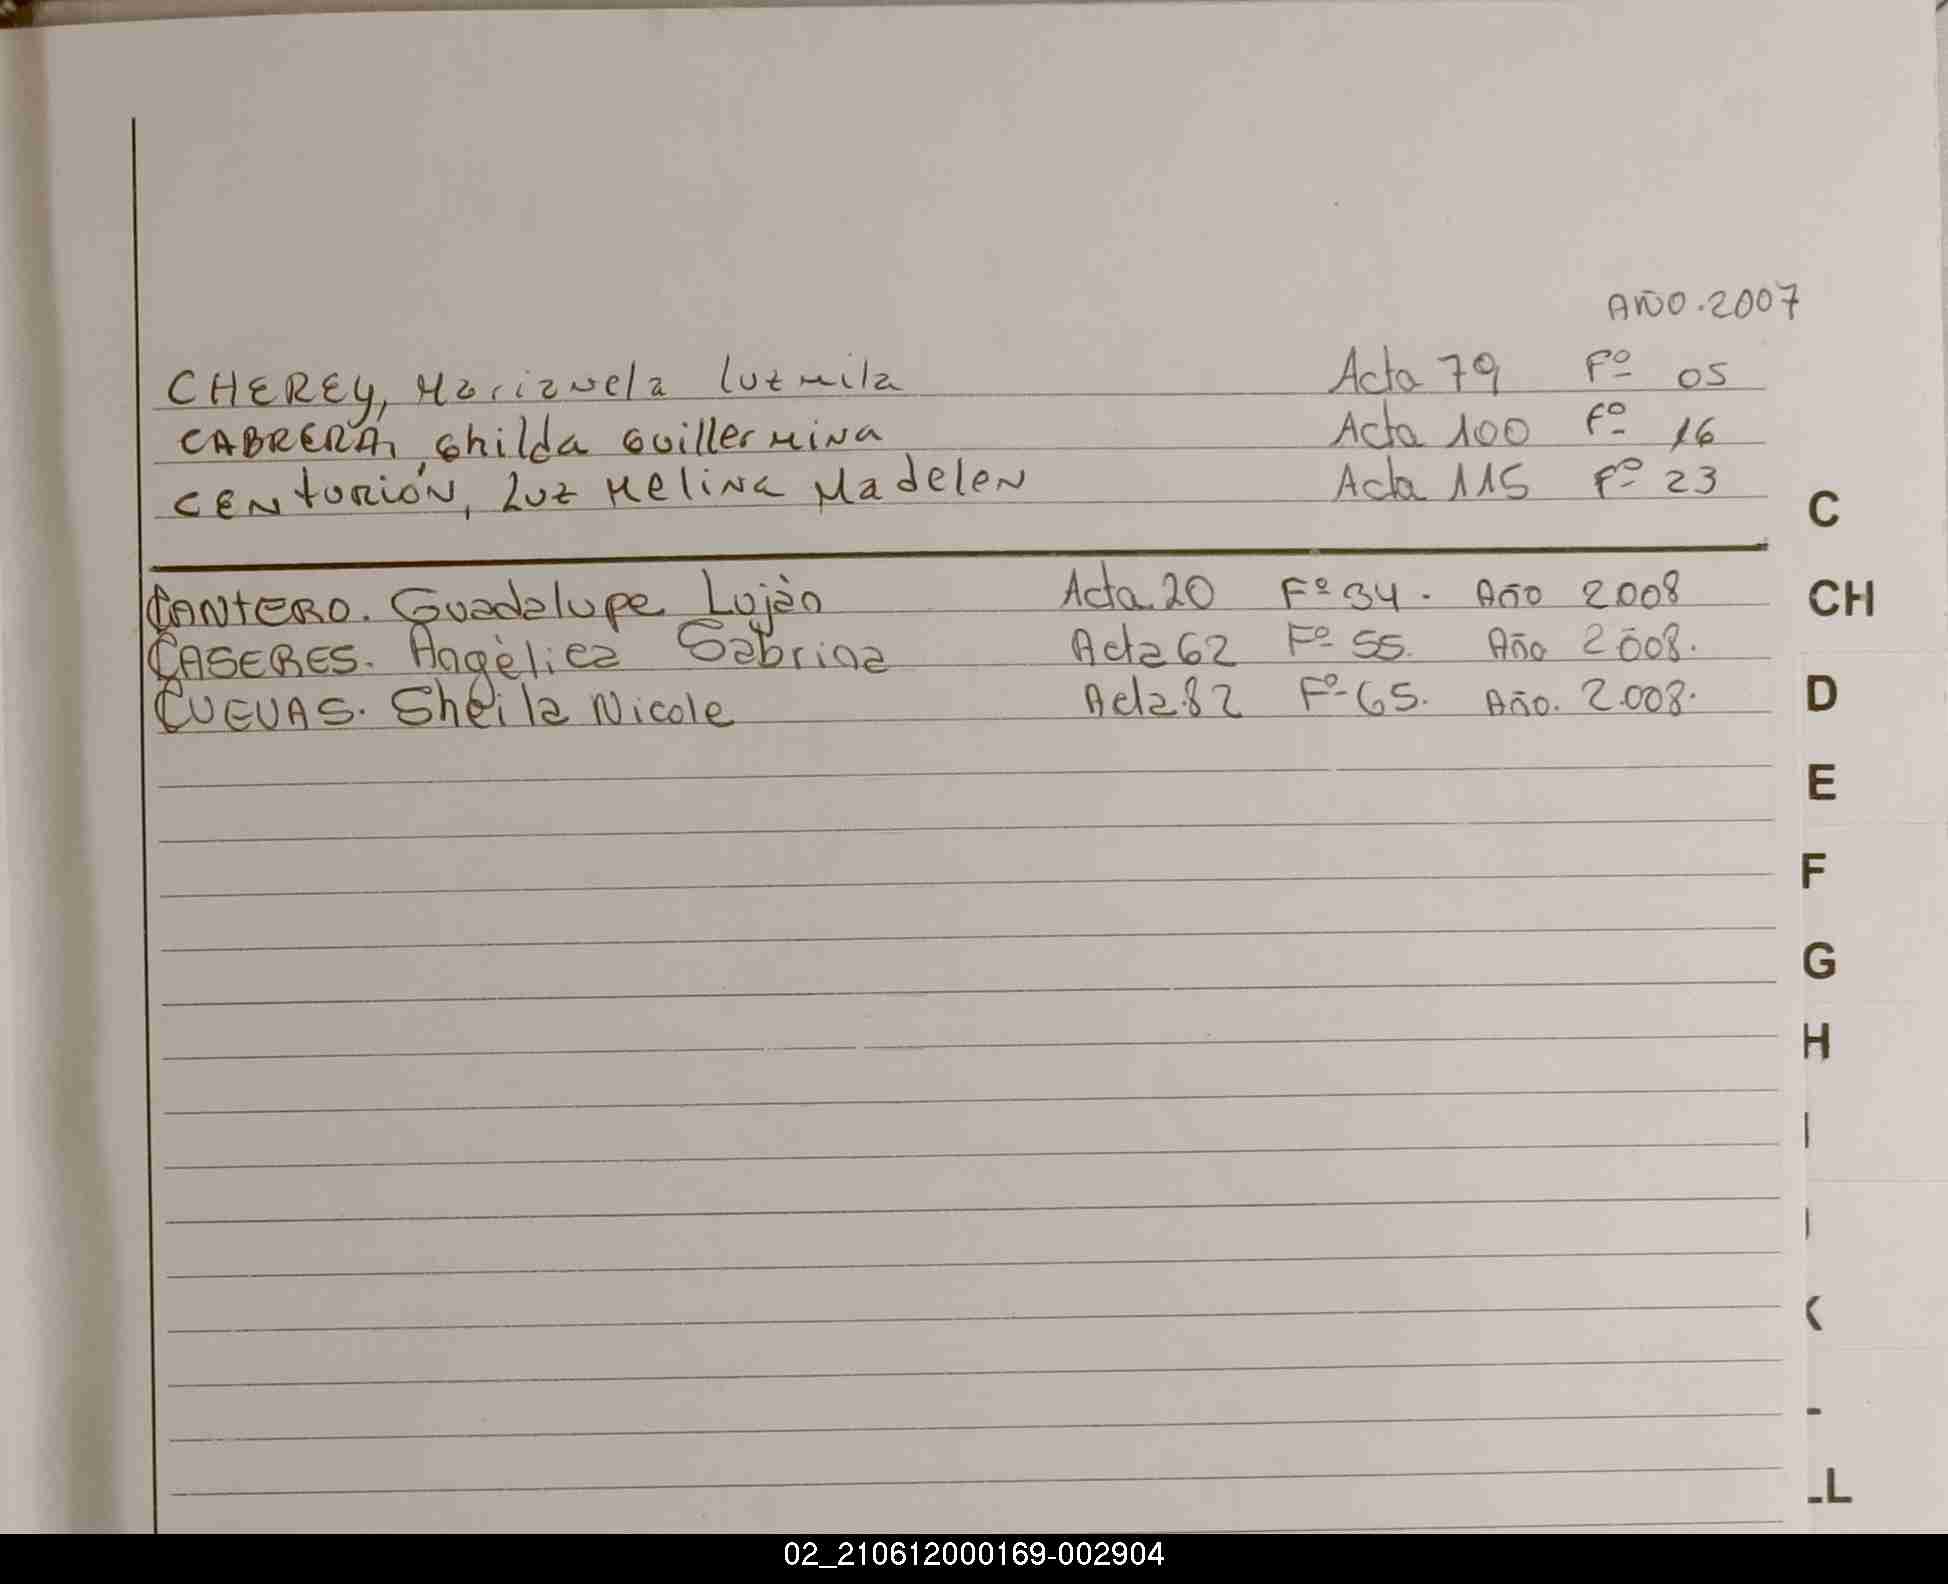 AÑO.2007
CHEREY, Marianela luzmila Acta 79 Fº 05
CABRERA, Ghilda Guillermina Acta 100 Fº 16
CENTURIÓN, Luz Melina Madelen Acta 115 Fº 23
CANTERO. Guadalupe Luján Acta 20 Fº 34. Año 2008
CASERES. Angèlica Sabrina Acta 62 Fº 55. Año 2008.
CUEVAS. Sheila Nicole Acta.82 Fº 65. Año. 2.008.
C
CH
D
E
F
G
H
I
J
K
L
LL
02_210612000169-002904